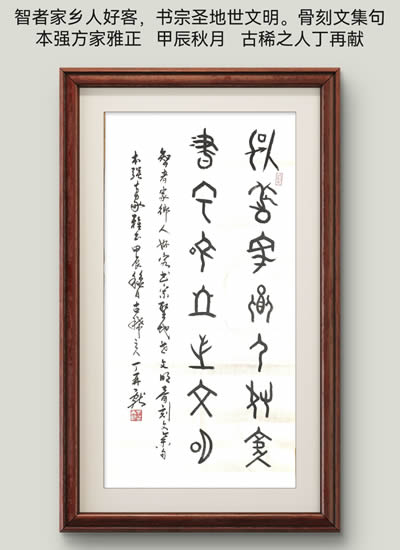 智者家乡人好客，书宗圣地世文明。骨刻文集句
本强方家雅正 甲辰秋月 古稀之人丁再献
智者家鄉人好客
書宗聖地世文明
智者家鄉人好客书宗聖地世文明骨刻文集句
本强方家雅正甲辰秋月古稀之人丁再献